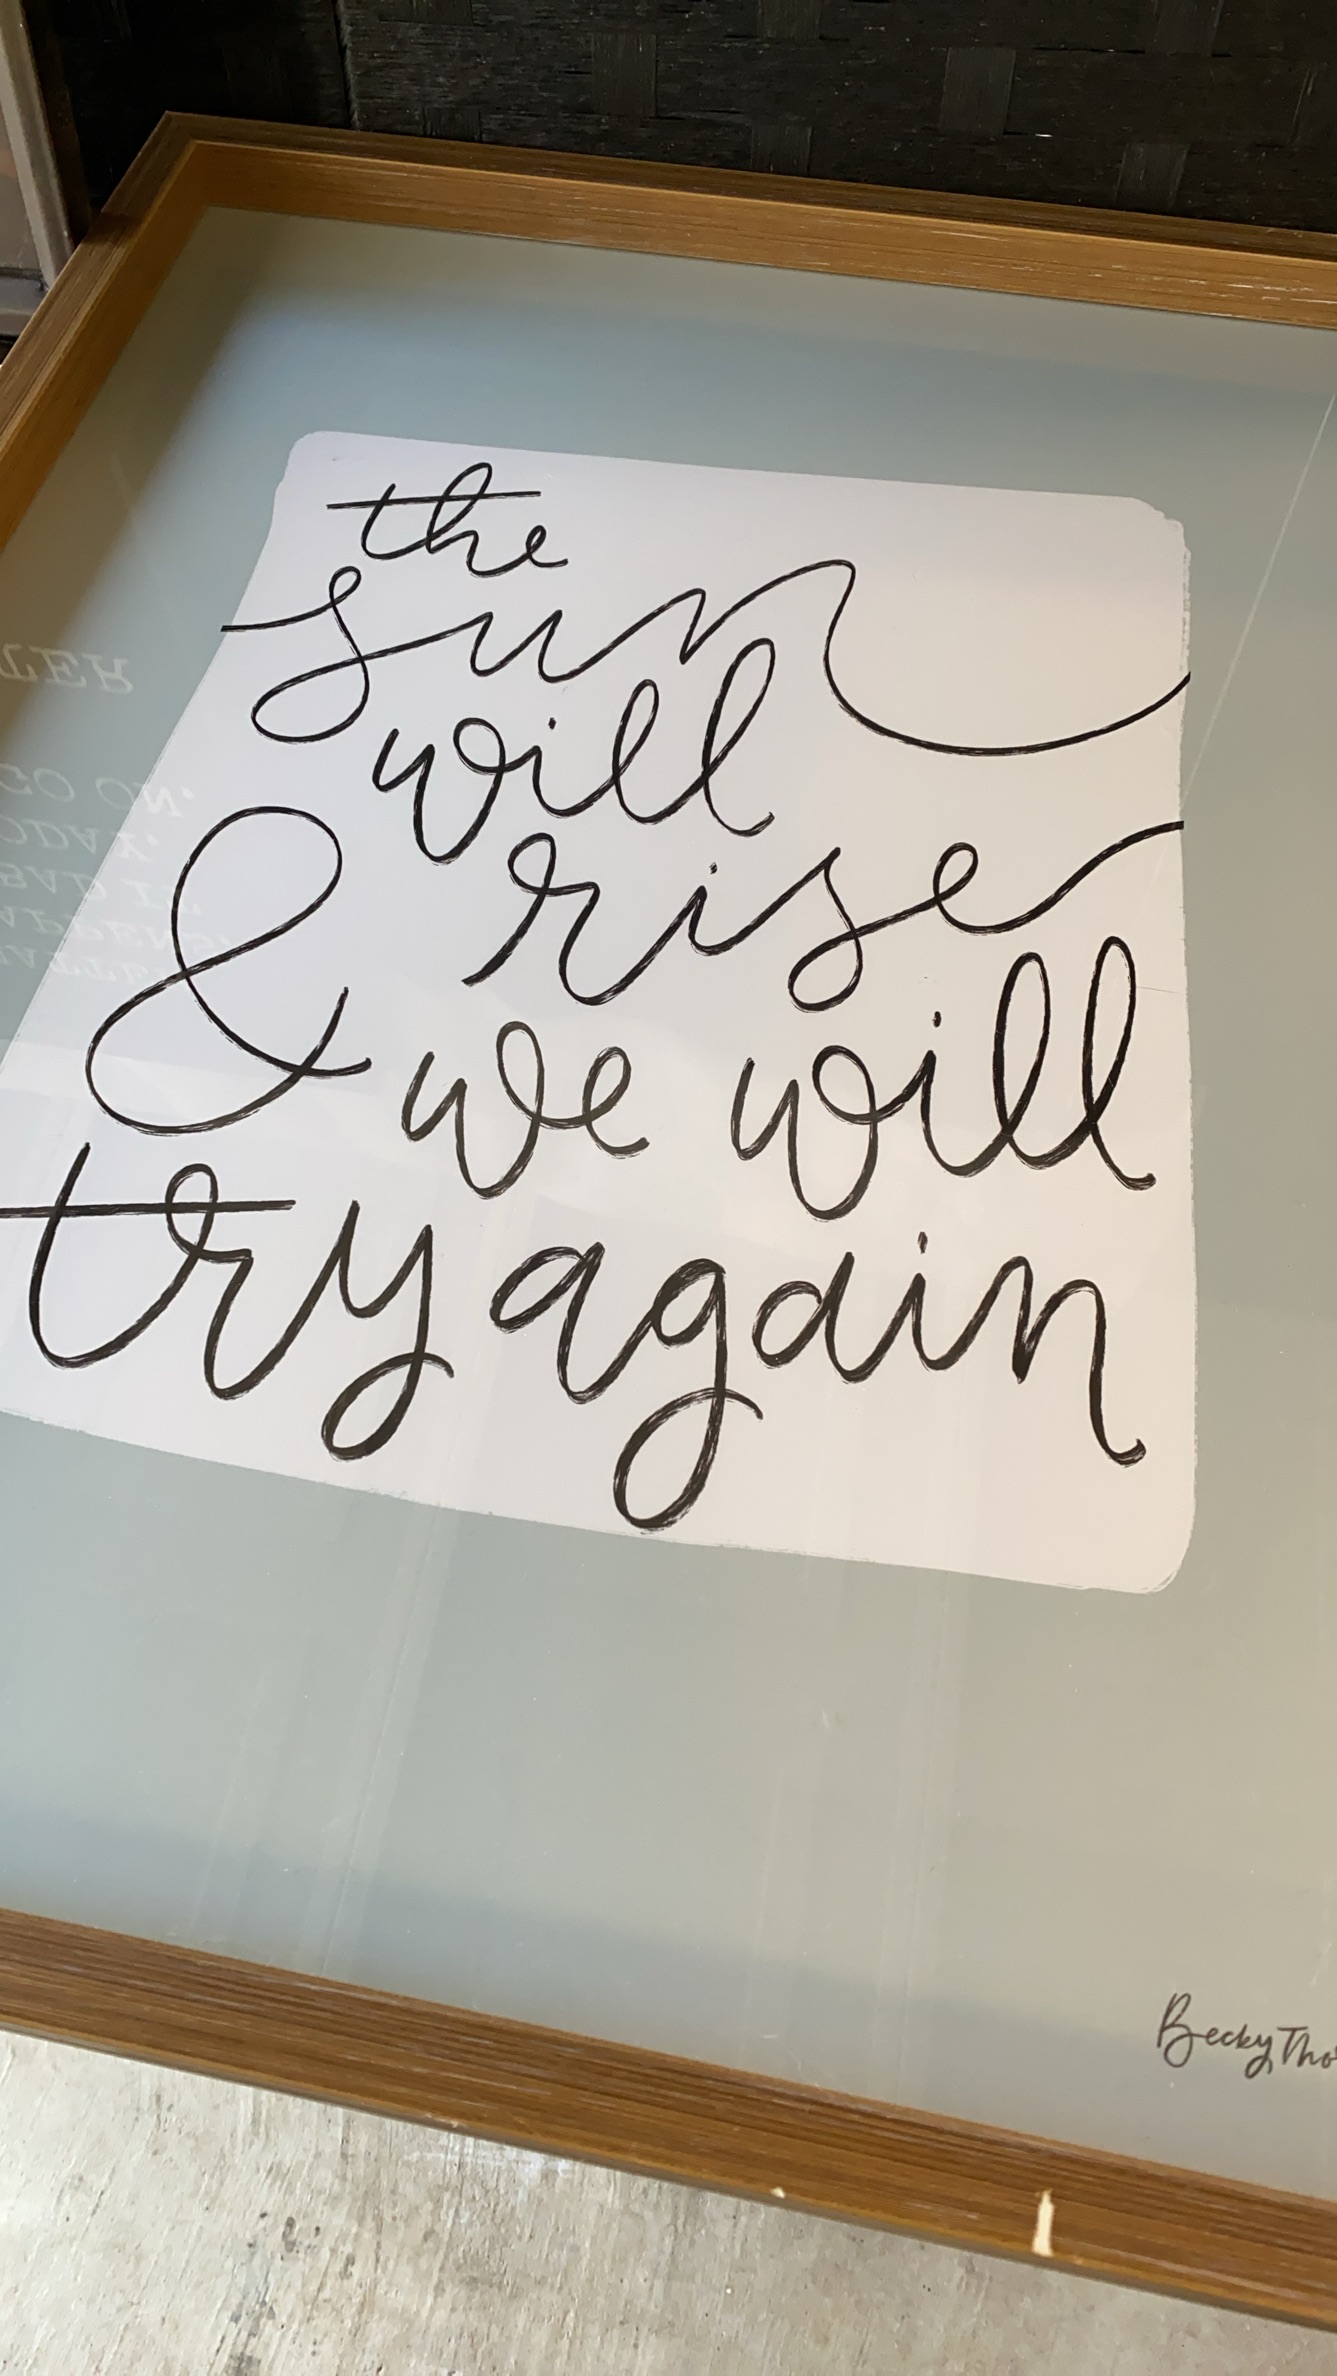 the
sun
will
rise
& we will
try again
Becky